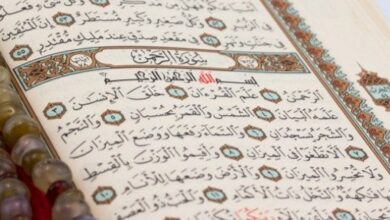 وَكُلُّ صَغِيرٍ وَكَبِيرٍ مُّسْتَطَرٌ إِنَّ الْمُتَّقِينَ
فِي مَقْعَدِ صِدْقٍ عِندَ مَلِيكٍ مُّقْتَدِرٍ
سُورَةُ الرَّحْمَٰن
بِسْمِ اللَّهِ الرَّحْمَٰنِ الرَّحِيمِ
الرَّحْمَٰنُ عَلَّمَ الْقُرْءَانَ خَلَقَ الْإِنسَانَ
عَلَّمَهُ الْبَيَانَ الشَّمْسُ وَالْقَمَرُ بِحُسْبَانٍ وَالنَّجْمُ
وَالشَّجَرُ يَسْجُدَانِ وَالسَّمَاءَ رَفَعَهَا وَوَضَعَ الْمِيزَانَ
أَلَّا تَطْغَوْا فِي الْمِيزَانِ وَأَقِيمُوا الْوَزْنَ بِالْقِسْطِ
وَلَا تُخْسِرُوا الْمِيزَانَ وَالْأَرْضَ وَضَعَهَا لِلْأَنَامِ
فِيهَا فَاكِهَةٌ وَالنَّخْلُ ذَاتُ الْأَكْمَامِ